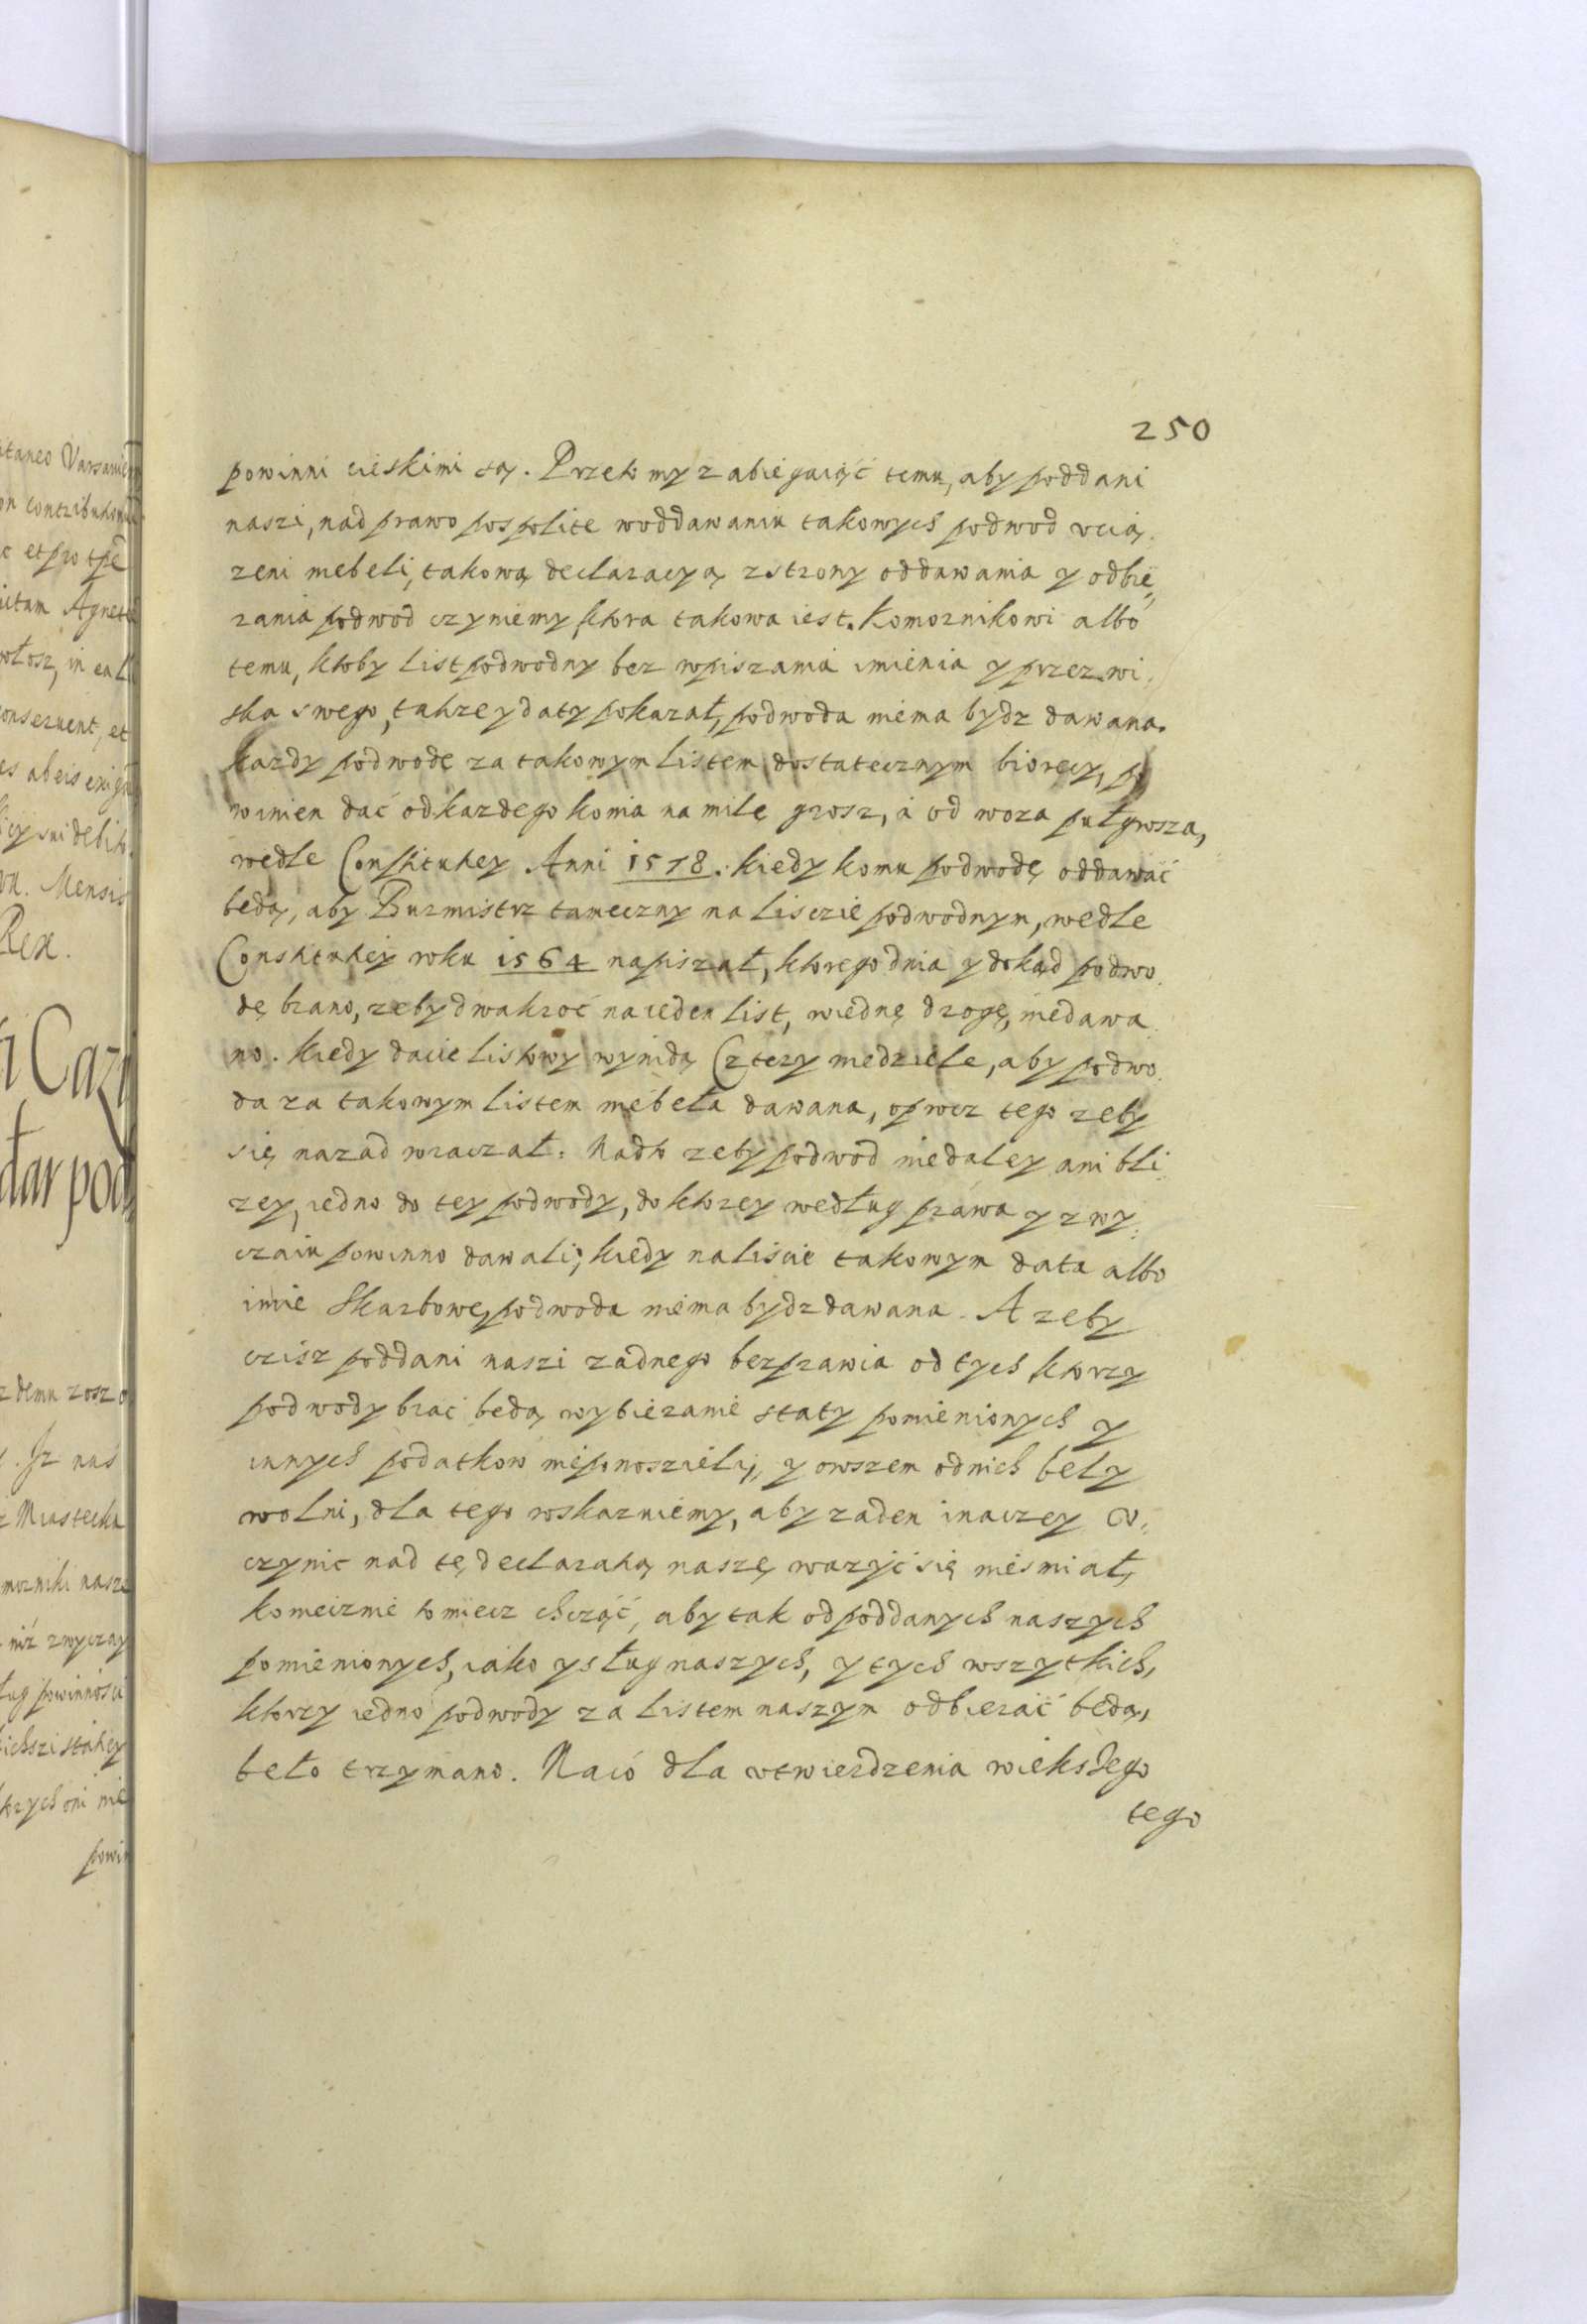 250
powinni cięskimi są. Przeto my zabiegaiąć temu, aby poddani
naszi, nad prawo pospolite woddawaniu takowych podwod vcią,
zeni niebeli, takową declaracyą zstrony oddawania y odbie,
rania podwod czyniemy, ktora takowa iest. Komornikowi albo
temu, ktoby list podwodny bez wpiszania imienia y przezwi,
ska swego, takze y daty pokazał, podwoda niema bydz dawana.
kazdy podwodę za takowym listem dostatecznym bioręcy, po
winien dać od kazdego konia na milę grosz, á od woza pułgrosza,
wedle Constitutiey Anni 1578. kiedy komu podwodę oddawać
będą, aby Burmistrz tameczny na lisczie podwodnym, wedle
Constitutiey roku 1564 napiszał, ktorego dnia y dokąd podwo
dę brano, zeby dwakroć na ieden list, wiednę drogę, niedawa
no. kiedy dacie listowy wynidą Cztery niedziele, aby podwo
da za takowym listem niebeła dawana, oprocz tego zeby
się nazad wraczał. Nadto zeby podwod niedaley ani bli
zey, iedno do tey podwody, do ktorey według prawa y zwy
czaiu powinno dawali; kiedy na liście takowym data albo
imie Skarbowe, podwoda niema bydz dawana. A zeby
czisz poddani naszi zadnego bezprawia od tych ktorzy
podwody brać będą wybieranie staty pomienionych y
innych podatkow nieponoszieli, y owszem odnich bely
wolni, dla tego wskazuiemy, aby zaden inaczey v
czynic nad tę declaratią naszę wazyć się nieśmiał,
koniecznie to miecz chcząć, aby tak od poddanych naszych
pomienionych, iako y sług naszych, y tych wszytkich,
ktorzy iedno podwody za listem naszym odbierać będą,
beło trzymano. Na có dla vtwierdzenia wiekszego
tego